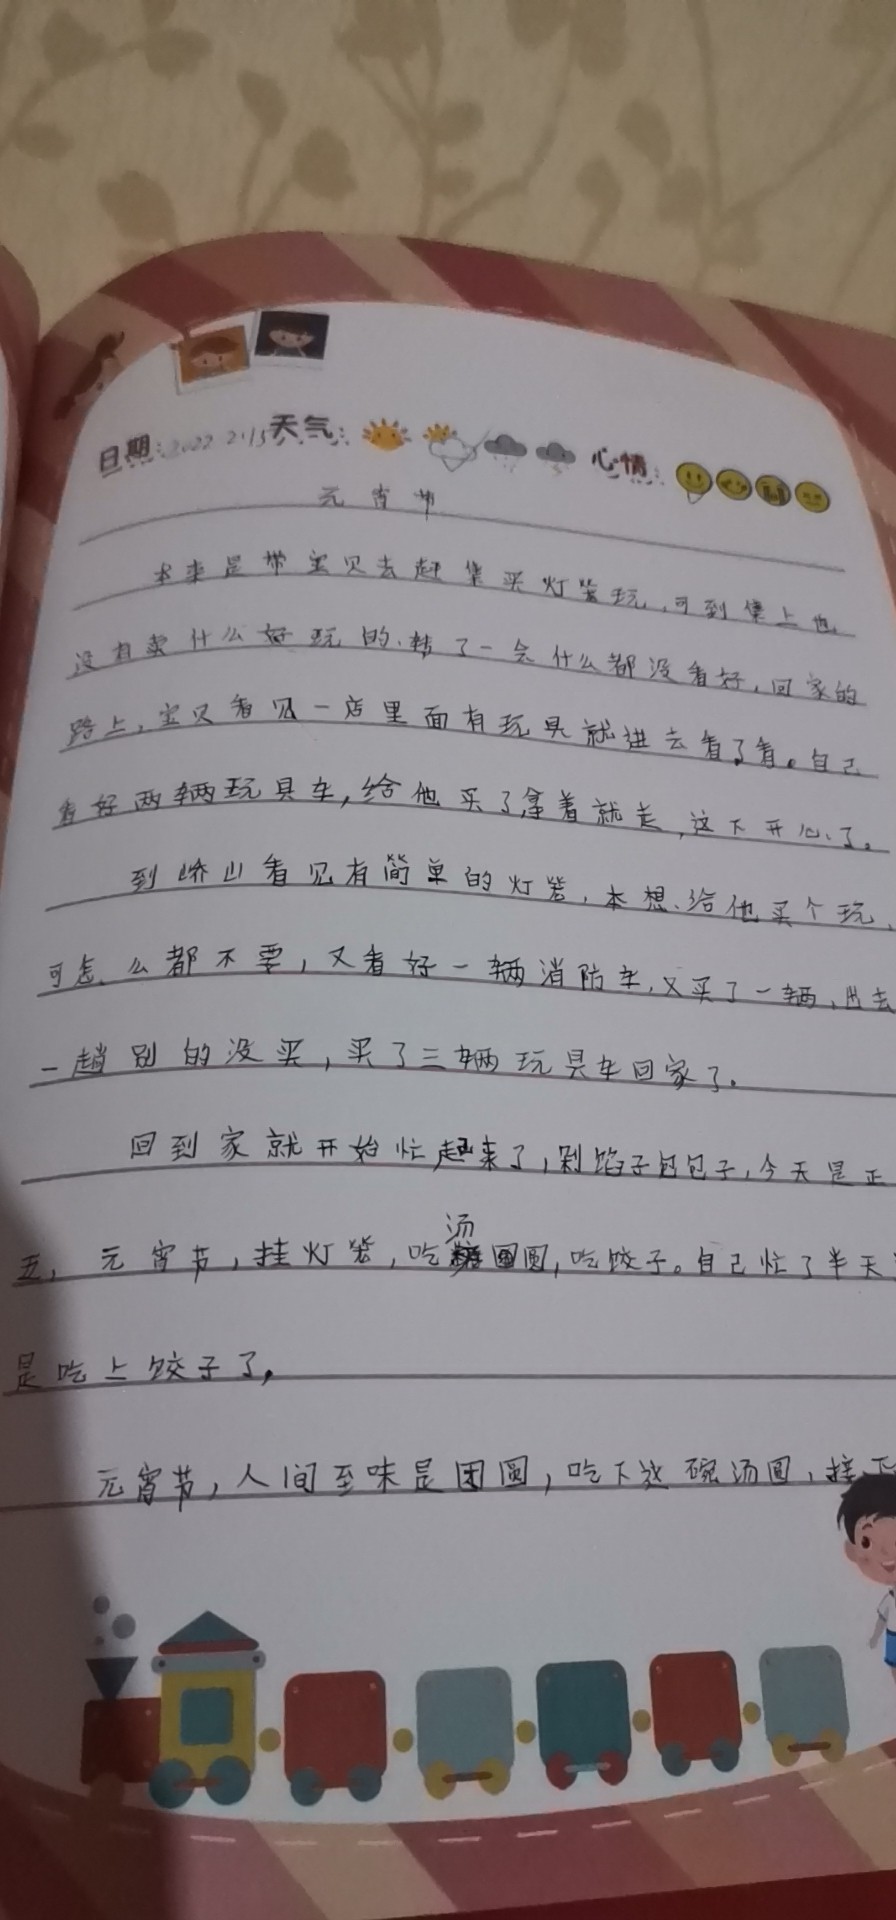 日期:2022 2.15天气: 心情:
元宵节
本来是带宝贝去赶集买灯笼玩,可到集上也
没有卖什么好玩的,转了一会什么都没看好,回家的
路上,宝贝看见一店里面有玩具就进去看了看。自己
看好两辆玩具车,给他买了拿着就走,这下开心了。
到峤山看见有简单的灯笼,本想给他买个玩,
可怎么都不要,又看好一辆消防车,又买了一辆,出去
一趟别的没买,买了三辆玩具车回家了。
回到家就开始忙起来了,剁馅子包包子,今天是正
五,元宵节,挂灯笼,吃汤圆,吃饺子。自己忙了半天
是吃上饺子了。
元宵节,人间至味是团圆,吃下这碗汤圆,接下